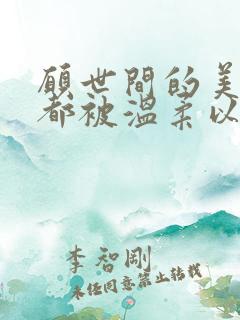 願世間的美
都被溫柔以
李智剛
未經同意禁止轉載